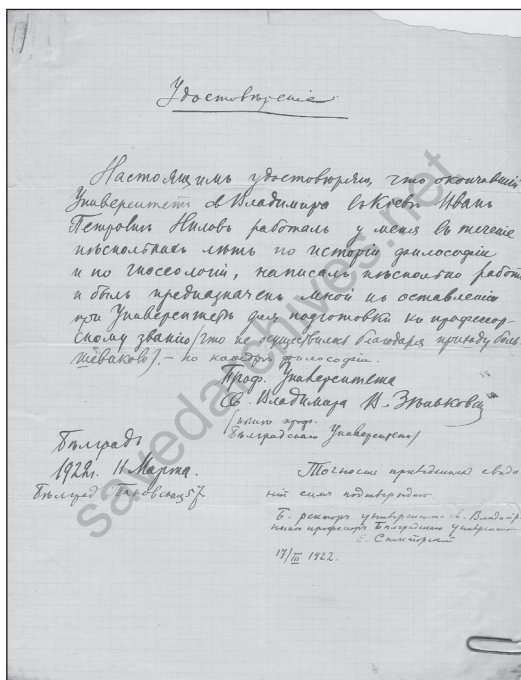 Удостовѣреніе
Настоящимъ удостовѣряю, что окончившій
Университетъ св Владимира въ Кіевѣ Иванъ
Петровичъ Ниловъ работалъ у меня въ теченіе
нѣсколькихъ лѣтъ по исторіи философіи
и по гносеологіи, написалъ нѣсколько работъ
и былъ предназначенъ мной къ оставленію
при Университетѣ для подготовки къ профессор-
скому званію (что не осуществилось благодаря приходу боль-
шевиковъ). – по каѳедрѣ философіи.
Проф. Университета
Св. Владимира В. Зѣньковскій
(нынѣ проф.
Бѣлградскаго Университета)
Бѣлградъ
1922г. 11 Марта.
Бѣлград
Точность приведенныхъ свѣдѣ
ній симъ подтверждаю.
Б. ректоръ университета Св. Владиміра
нынѣ профессоръ Бѣлградскаго Университета
Е. Спекторскій
17/III 1922.
savedarchives.net